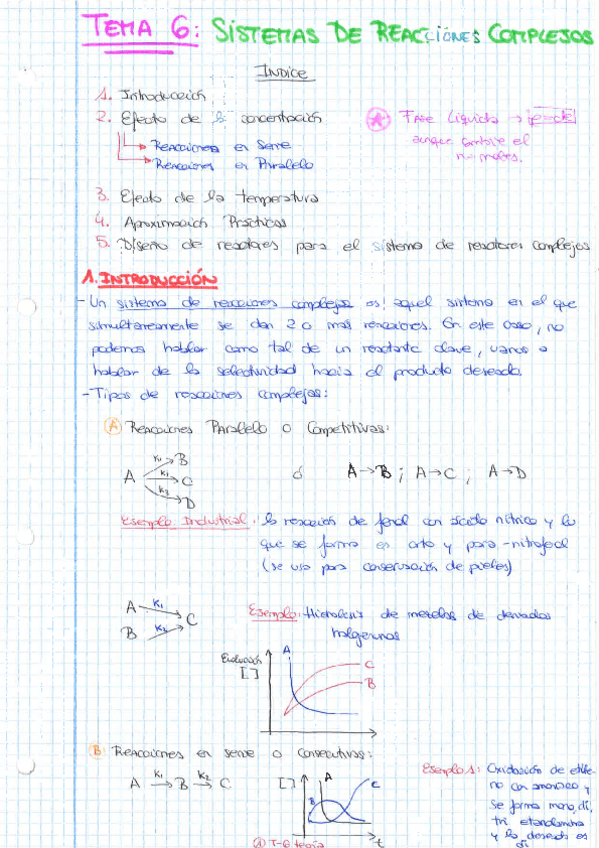 TEMA 6: SISTEMAS DE REACCIONES COMPLEJOS
INDICE
1. Introducción
2. Efecto de la concentración
Reacciones en Serie
Reacciones en Paralelo
* FASE Líquida → ρ=cte
aunque cambie el
nº moles.
3. Efecto de la temperatura
4. Aproximación Prácticas
5. Diseño de reactores para el sistema de reactores complejos
1. INTRODUCCIÓN
- Un sistema de reacciones complejas es: aquel sistema en el que
simultáneamente se dan 2 o más reacciones. En este caso, no
podemos hablar como tal de un reactante clave, vamos a
hablar de la selectividad hacia el producto deseado.
- Tipos de reacciones complejas:
A Reacciones Paralelo o Competitivas:
A K1 → B
K1 → C
K2 → D
ó A→B ; A→C ; A→D
Ejemplo Industrial: la reacción de fenol con ácido nítrico y lo
que se forma es orto y para-nitrofenol
(se usa para conservación de pieles)
A K1
B K2
C
Ejemplo: Hidrólisis de mezclas de derivados
halógenos
Evolución
[ ]
A
C
B
t
B Reacciones en serie o Consecutivas:
A K1→ B K2→ C
[ ]
A
B
C
t
Ejemplo 1: Oxidación de etile-
no con amoniaco y
se forma mono, di,
tri etanolamina
y lo deseado es
di